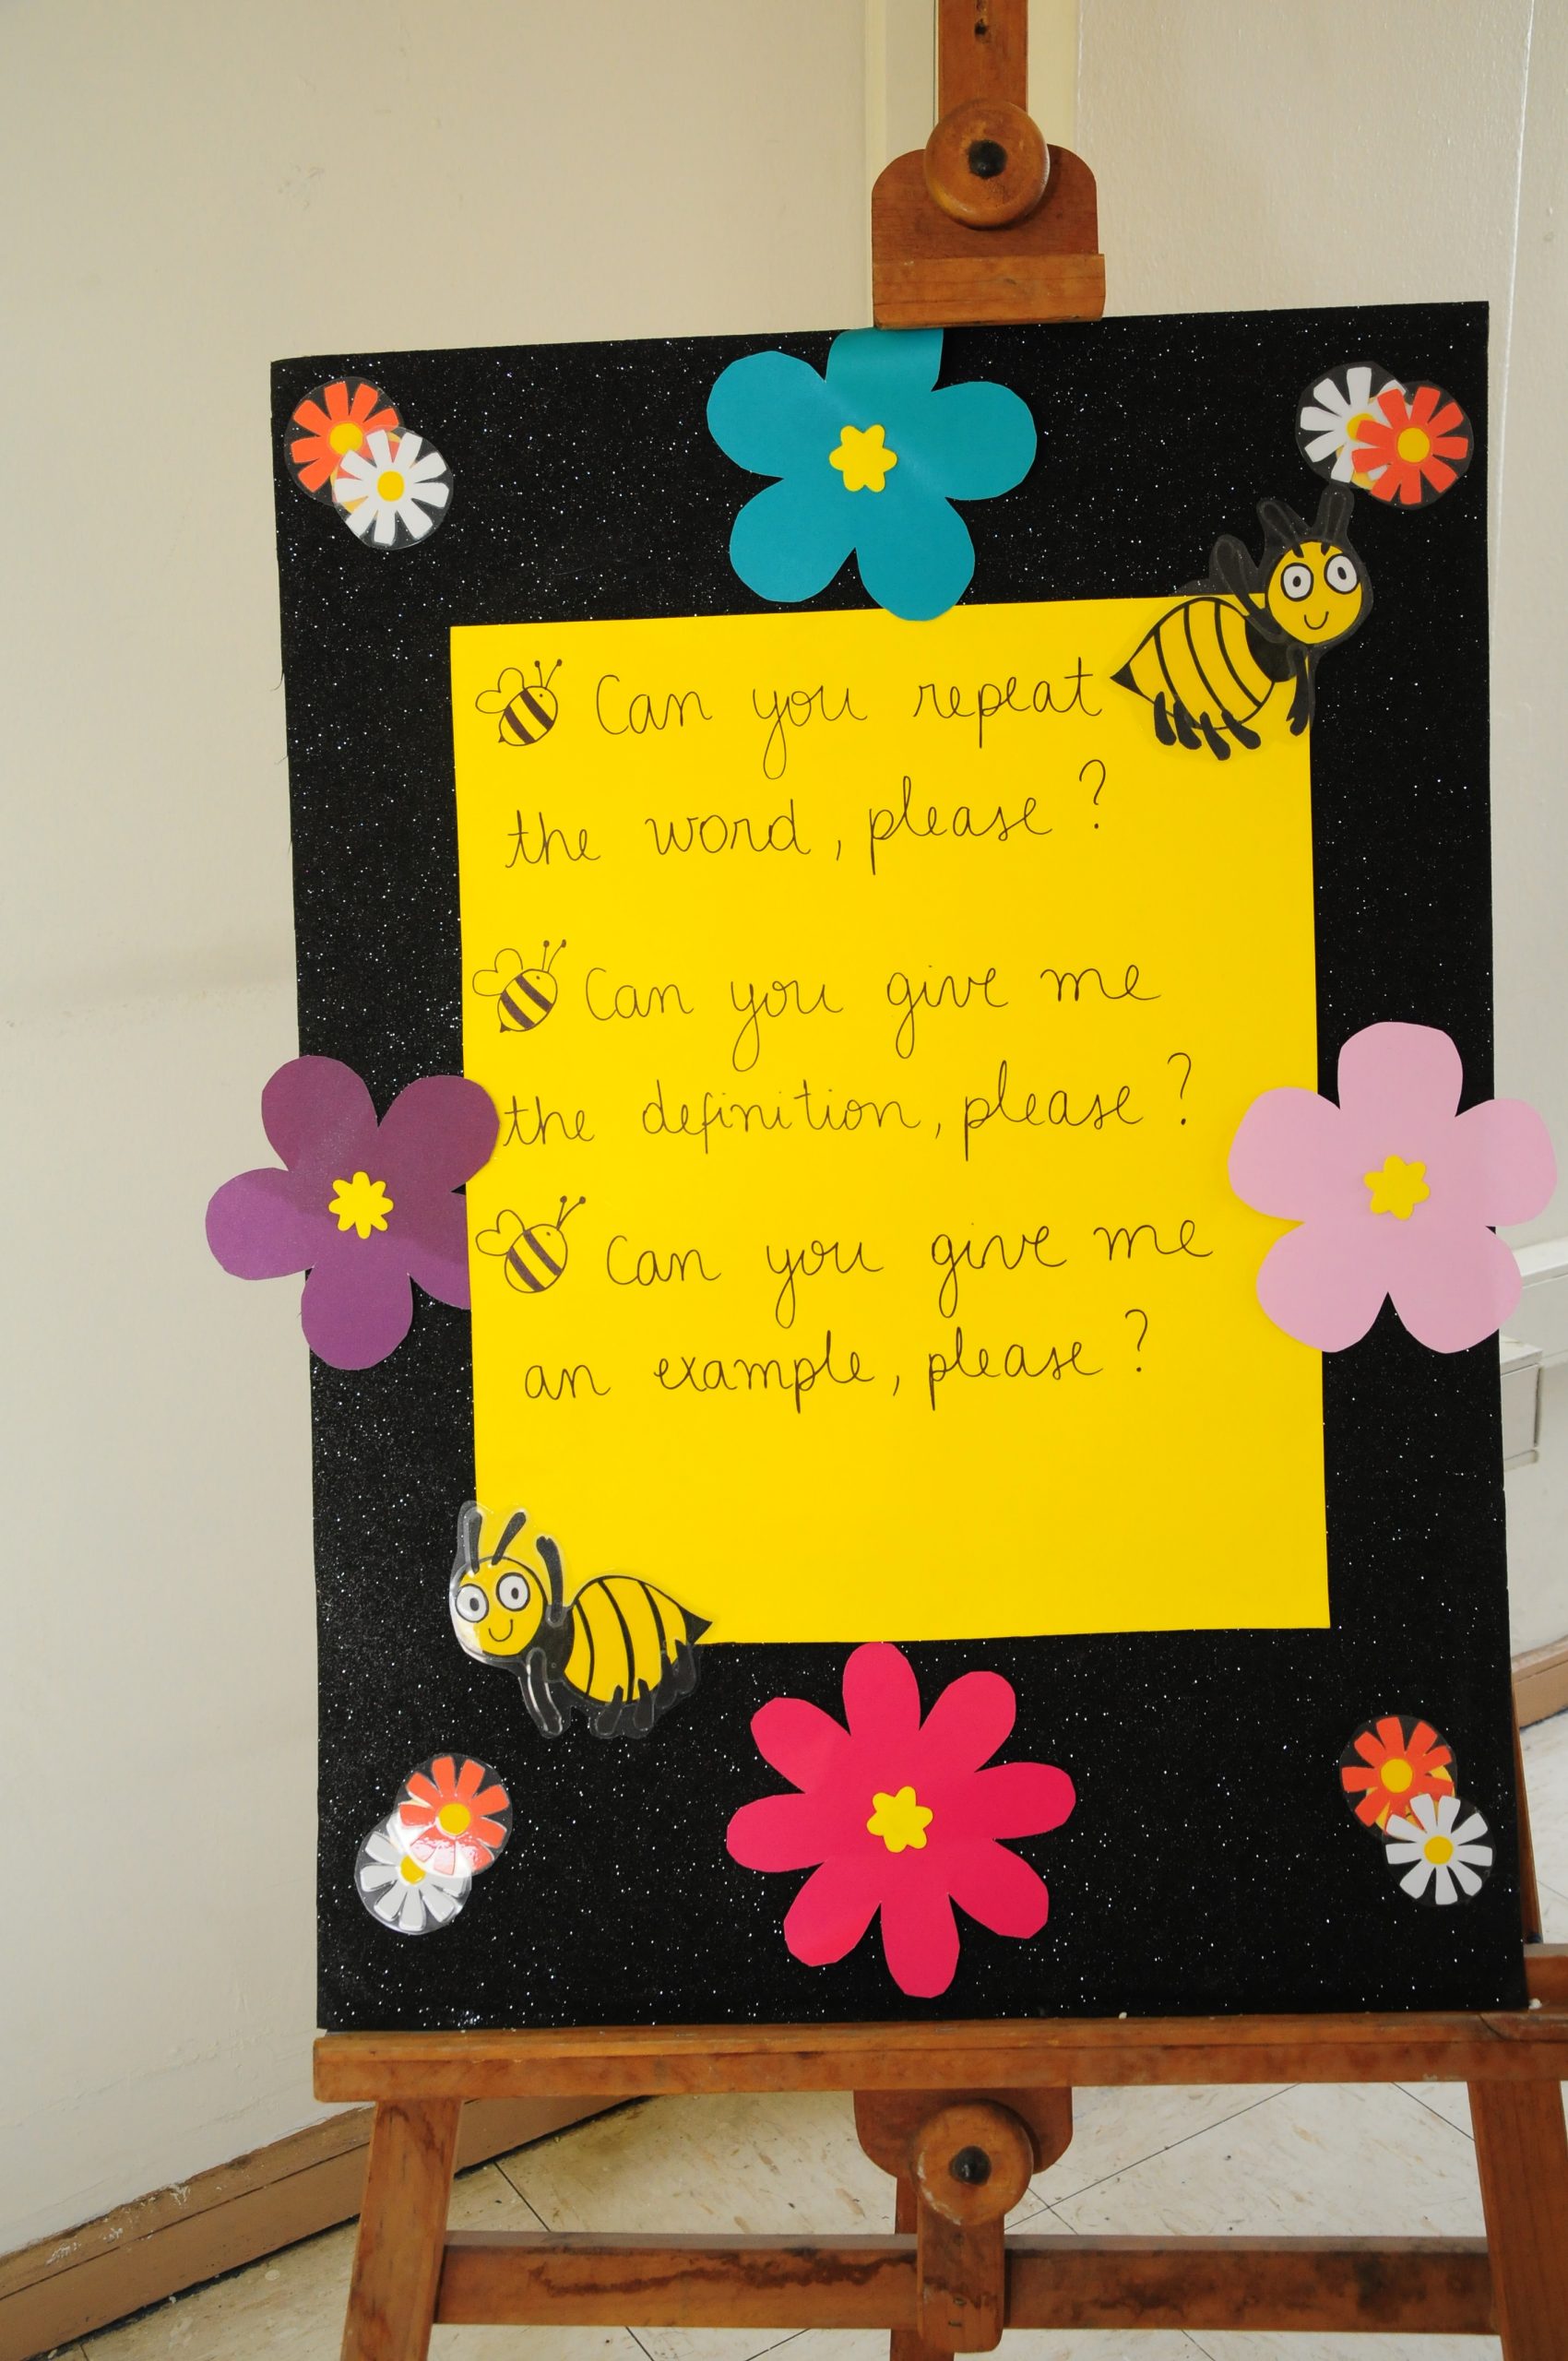 Can you repeat
the word, please?
Can you give me
the definition, please?
Can you give me
an example, please?